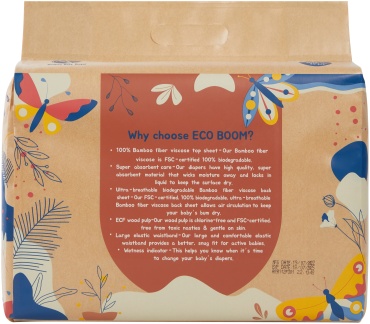 Why choose ECO BOOM?
• 100% Bamboo fiber viscose top sheet-Our Bamboo fiber
viscose is FSC-certified 100% biodegradable.
• Super absorbent core-Our diapers have high quality, super
absorbent material that wicks moisture away and locks in
liquid to keep the surface dry.
• Ultra-breathable biodegradable Bamboo fiber viscose back
sheet-Our FSC-certified, 100% biodegradable, ultra-breathable
Bamboo fiber viscose back sheet allows air circulation to keep
your baby's bum dry.
• ECF wood pulp-Our wood pulp is chlorine-free and FSC-certified,
free from toxic nasties & gentle on skin.
• Large elastic waistband-Our large and comfortable elastic
waistband provides a better, snug fit for active babies.
• Wetness indicator-This helps you know when it's time
to change your baby's diapers.